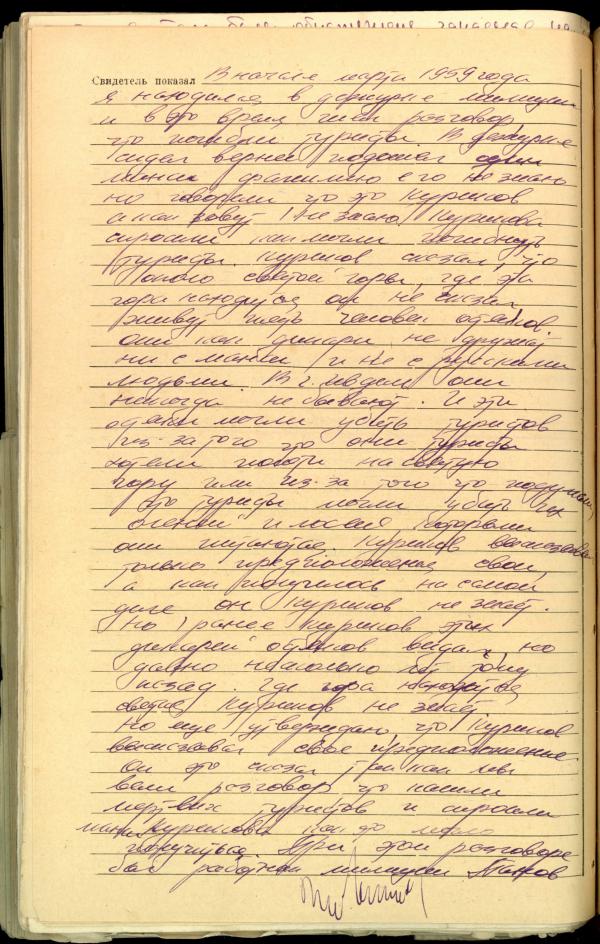 Свидетель показал В начале марта 1959 года
я находился в дежурке милиции
и в это время шел разговор
что погибли туристы. В дежурке
сидел вернее подошел один
манси фамилию его не знаю
но говорили что это Куриков
а как зовут не знаю. Курикова
спросили как могли погибнуть
туристы. Куриков сказал, что
около святой горы, где эта
гора находится он не сказал,
живут пять человек остяков.
они как дикари не дружат
ни с манси и ни с русскими
людьми. В г. Ивдель они
никогда не бывают. И эти
остяки могли убить туристов
из-за того что они туристы
хотели пойти на святую
гору или из-за того что подумали,
что туристы могли убить их
оленей и лосей которыми
они питаются. Куриков высказывал
только предположение свои,
а как получилось на самом
деле он Куриков не знает.
Но ранее Куриков этих
дикарей остяков видал, но
давно несколько лет тому
назад. Где гора находится
святая Куриков не знает,
но еще утверждаю, что Куриков
высказывал свое предположение
он это сказал так как мы
вели разговор что нашли
мертвых туристов и спросили
манси Курикова как это могло
получиться. При этом разговоре
был работник милиции